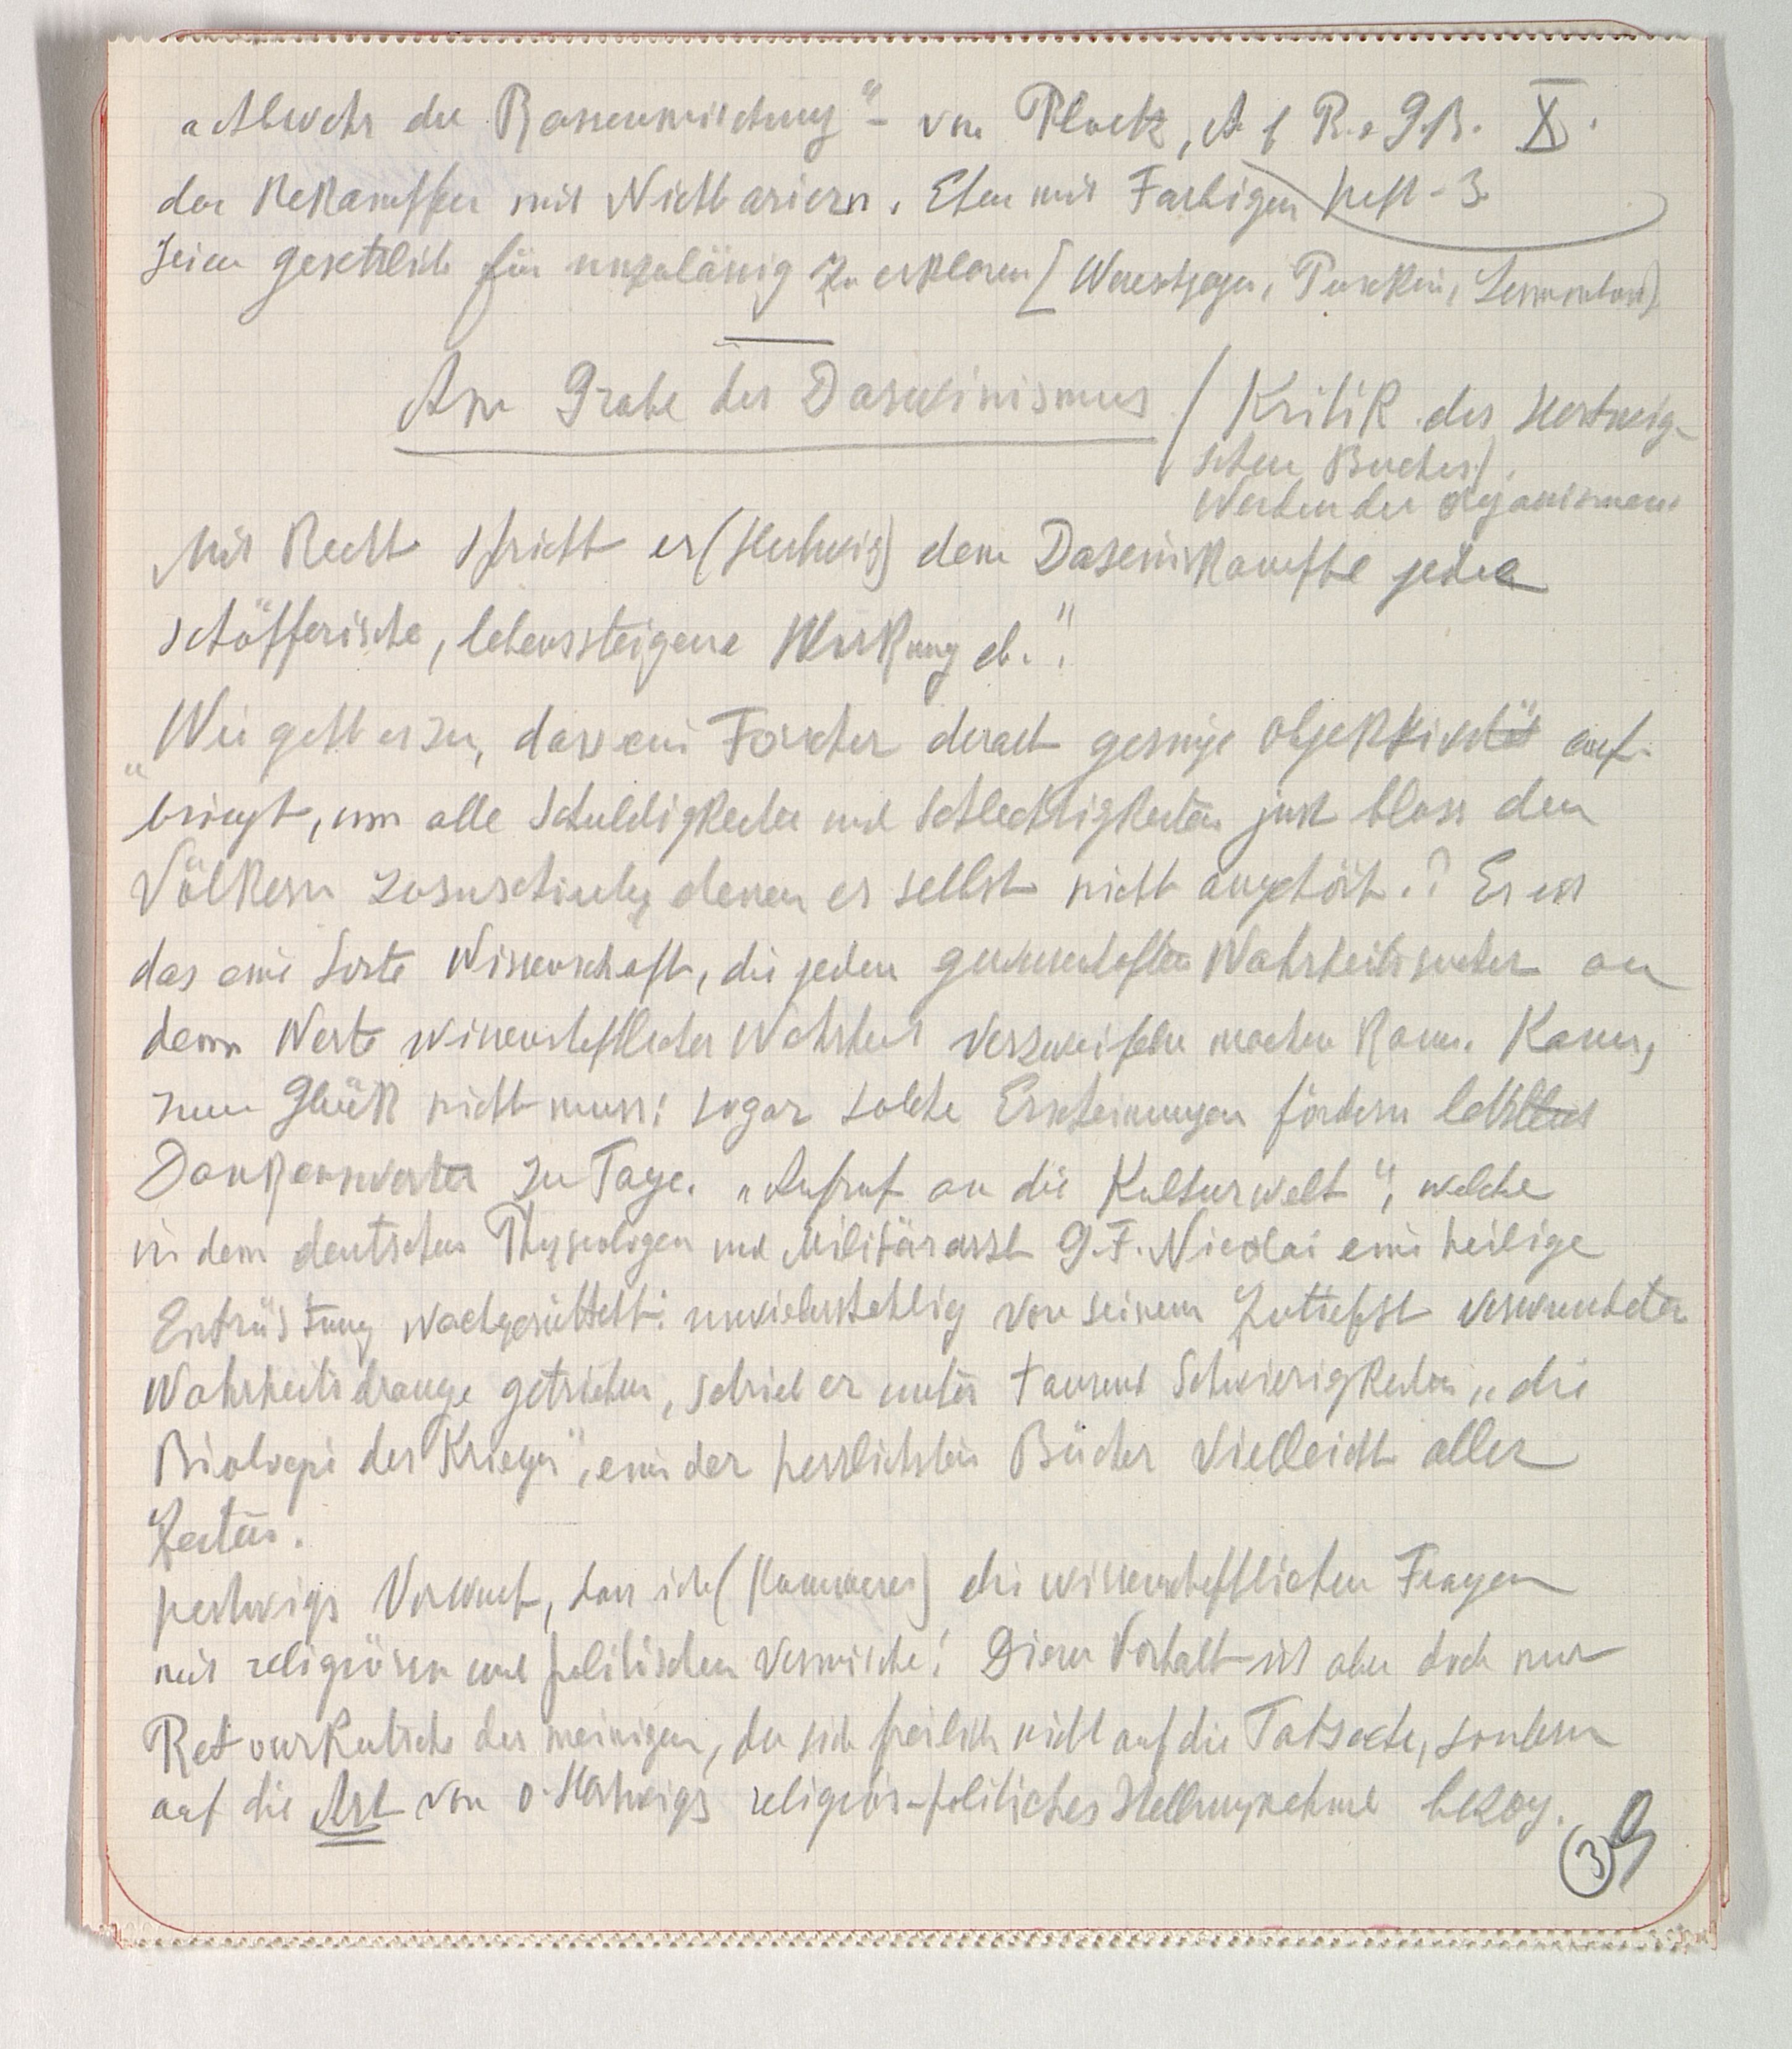 „Abwehr der Rassenmischung“ – von Ploetz, A f R. u G.B. X.
der Bekämpfer mit Nichtariern. Ehen mit Farbigen Heft - 3.
seien gesetzlich für unzulässig zu erklären [ Puschkin, Lermontow).
Am Grabe des Darwinismus / Kritik des Hertwig-
schen Buches).
Werden der Organismen
Mit Recht spricht er (Hertwig) dem Daseinskampfe jede
schöpferische, lebenssteigerne Wirkung ab.“.
„Wie geht es zu, dass ein Forscher derart geringe Objektivität auf-
bringt, um alle Schuldigkeiten und Schlechtigkeiten just bloss den
Völkern zuzuschieben, denen er selbst nicht angehört.? Es ist
das eine Sorte Wissenschaft, die jeden gewissenhaften Wahrheitssucher an
dem Werte wissenschaftlicher Wahrheit verzweifeln machen kann. Kann,
zum Glück nicht muss: sogar solche Erscheinungen fördern letztlich
Dankenswertes zu Tage. „Aufruf an die Kulturwelt“, welche
in dem deutschen Physiologen und Militärarzt G.F. Nicolai eine heilige
Entrüstung wachgerüttelt: unwiderstehlig von seinem zutiefst verwundeten
Wahrheitsdrange getrieben, schrieb er unter tausend Schwierigkeiten „die
Biologie des Krieges“, eins der herrlichsten Bücher vielleicht aller
Zeiten.
Hertwigs Vorwurf, dass ich (Kammerer) die wissenschaftlichen Fragen
mit religiösen und politischen vermische! Dieser Vorhalt ist aber doch nur
Retourkutsche des meinigen, der sich freilich nicht auf die Tatsache, sondern
auf die Art von O. Hertwigs religiös-politisches Stellungnahme bezog.
3